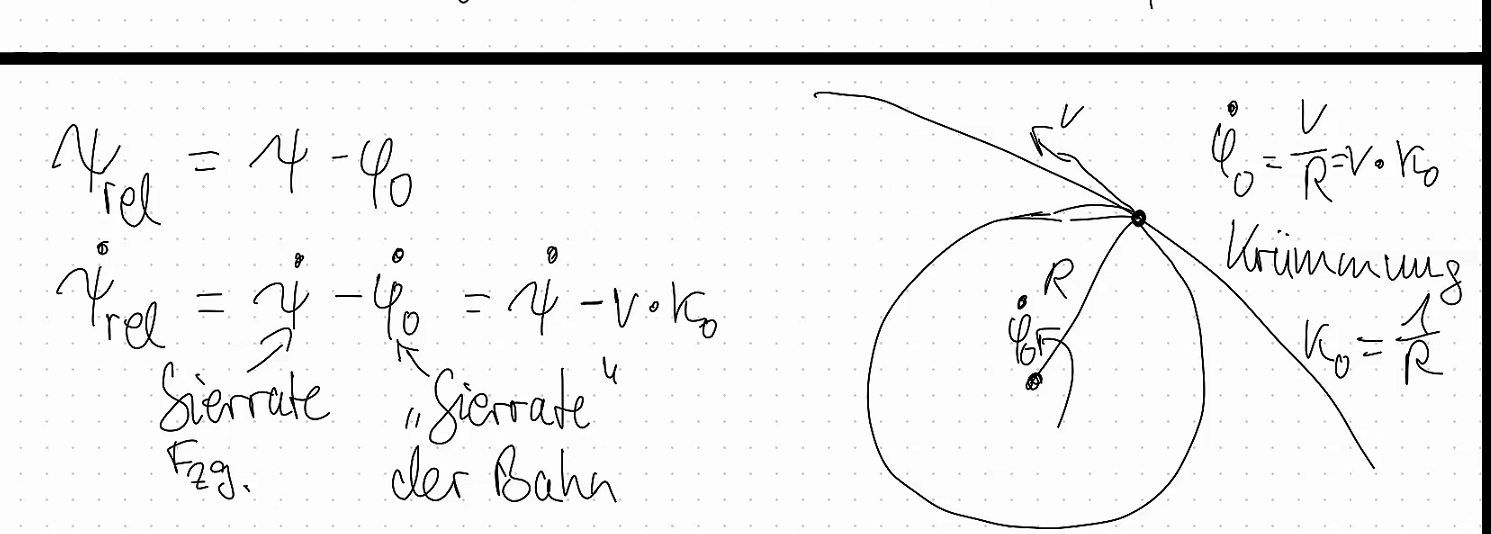 ψ_rel = ψ - φ_0
ψ̇_rel = ψ̇ - φ̇_0 = ψ̇ - v · κ_0
Gierrate
Fzg.
„Gierrate“
der Bahn
v
R
φ̇_0
φ̇_0 = v/R = v · κ_0
Krümmung
κ_0 = 1/R